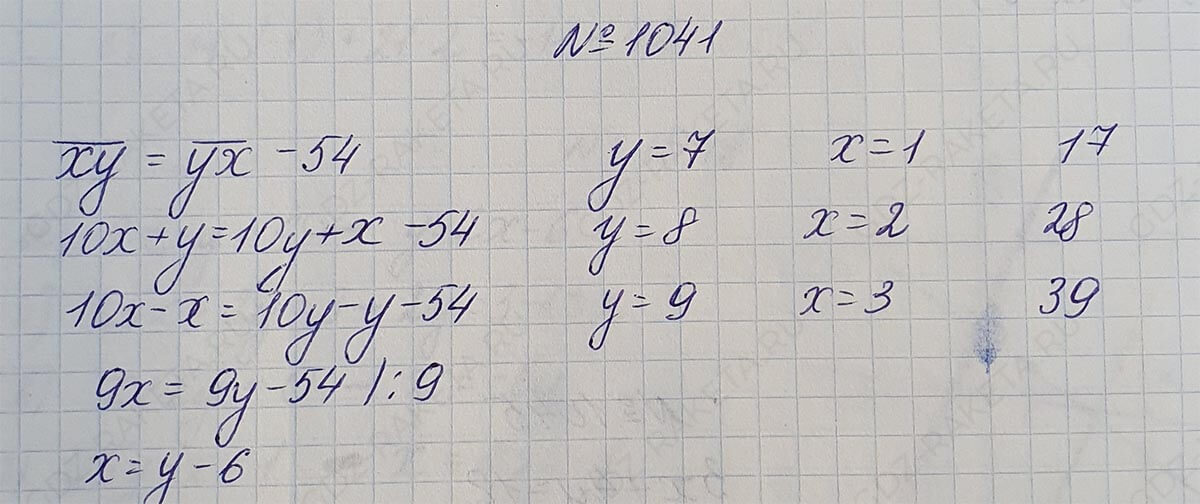 №1041
xy = yx - 54 y = 7 x = 1 17
10x + y = 10y + x - 54 y = 8 x = 2 28
10x - x = 10y - y - 54 y = 9 x = 3 39
9x = 9y - 54 | : 9
x = y - 6
GDZ-RAKETA.RU